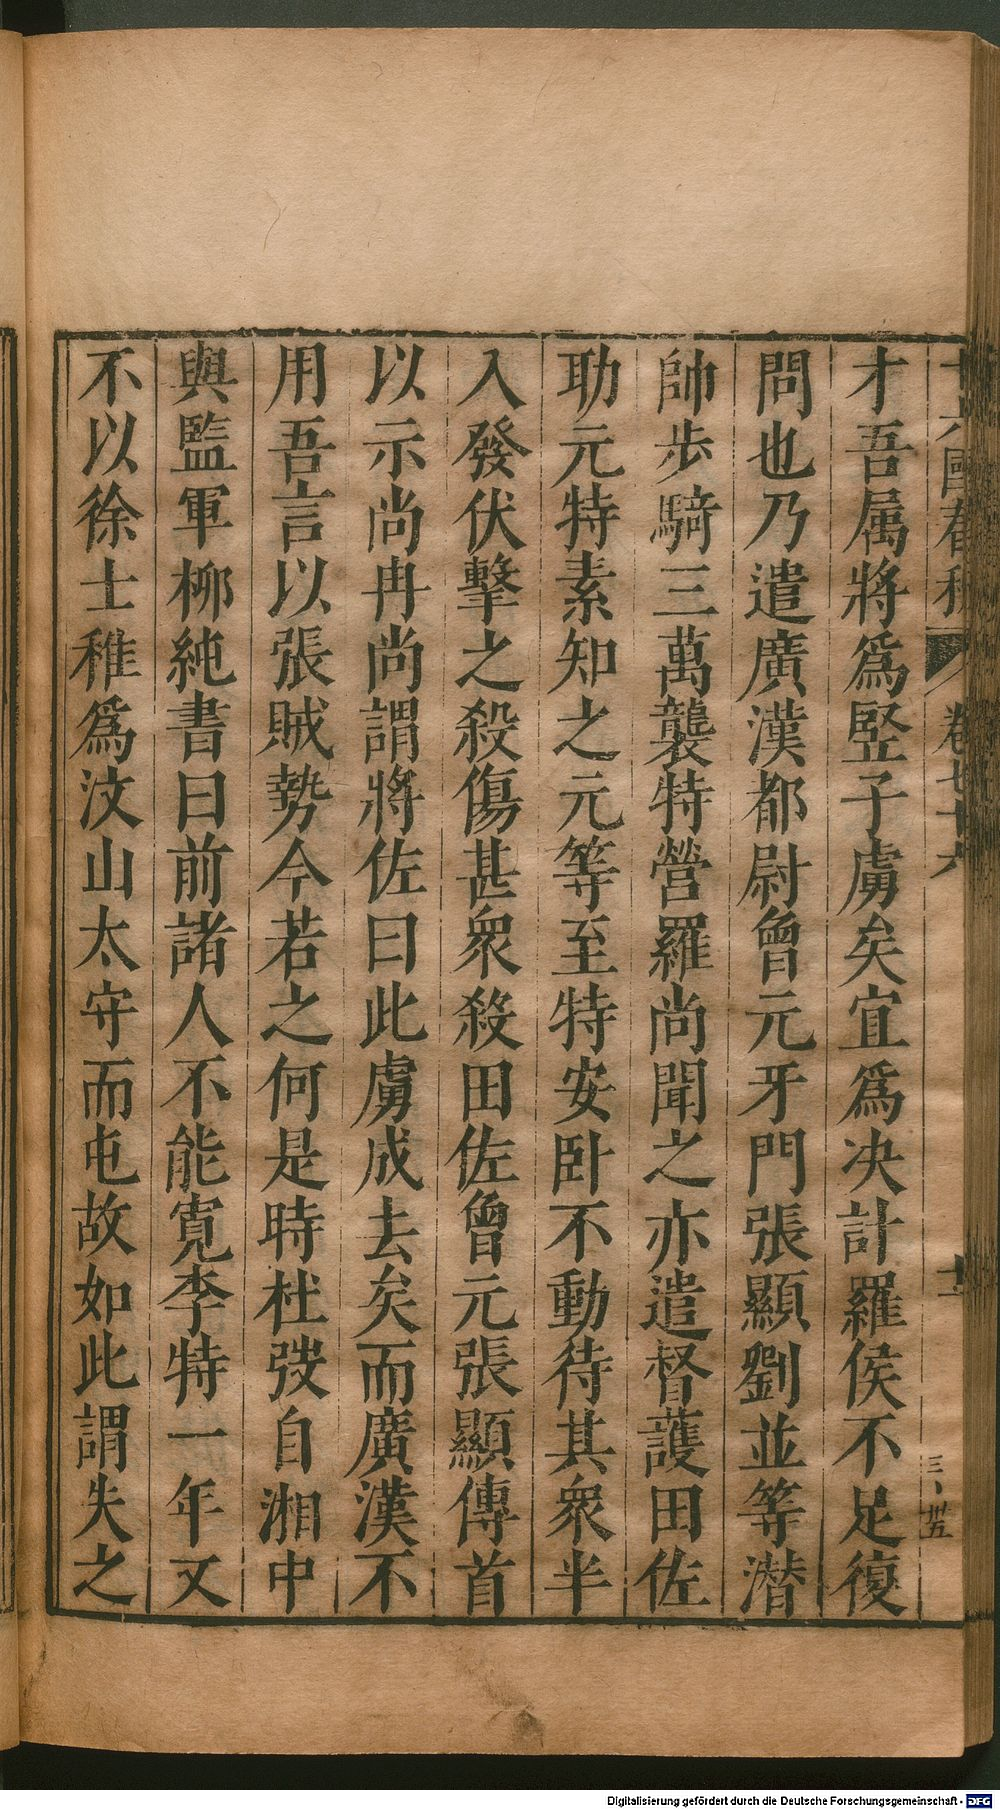 才吾属將爲竪子虜矣宜爲决計羅侯不足復
問也乃遣廣漢都尉曾元牙門張顯劉並等潜
帥步騎三萬襲特營羅尚聞之亦遣督護田佐
助元特素知之元等至特安卧不動待其衆半
入發伏擊之殺傷甚衆殺田佐曾元張顯傳首
以示尚冉尚謂將佐曰此虜成去矣而廣漢不
用吾言以張賊勢今若之何是時杜弢自湘中
與監軍柳純書曰前諸人不能寛李特一年又
不以徐士稚爲汶山太守而屯故如此謂失之
十六國春秋 卷七十六 十一
三、卅五
Digitalisierung gefördert durch die Deutsche Forschungsgemeinschaft - DFG